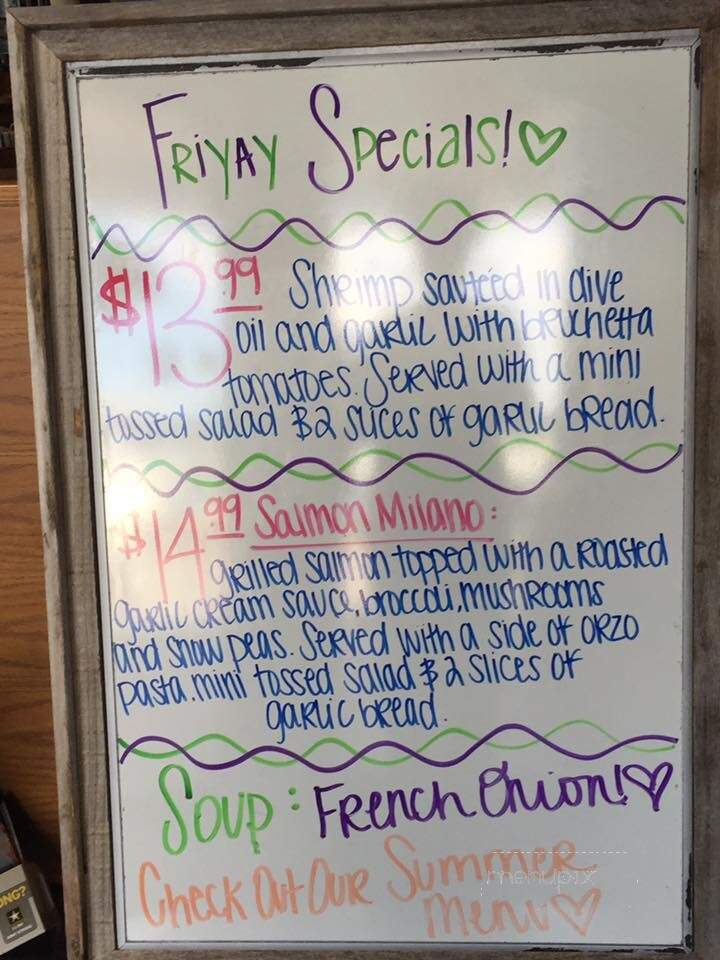 Friyay Specials!♡
$13.99 Shrimp sauteed in olive
oil and garlic with bruchetta
tomatoes. Served with a mini
tossed salad & 2 slices of garlic bread.
$14.99 Salmon Milano:
grilled salmon topped with a roasted
garlic cream sauce, broccoli, mushrooms
and snow peas. Served with a side of orzo
pasta. mini tossed salad & 2 slices of
garlic bread.
Soup: French Onion!♡
Check Out Our Summer
Menu♡
menupix
ONG?